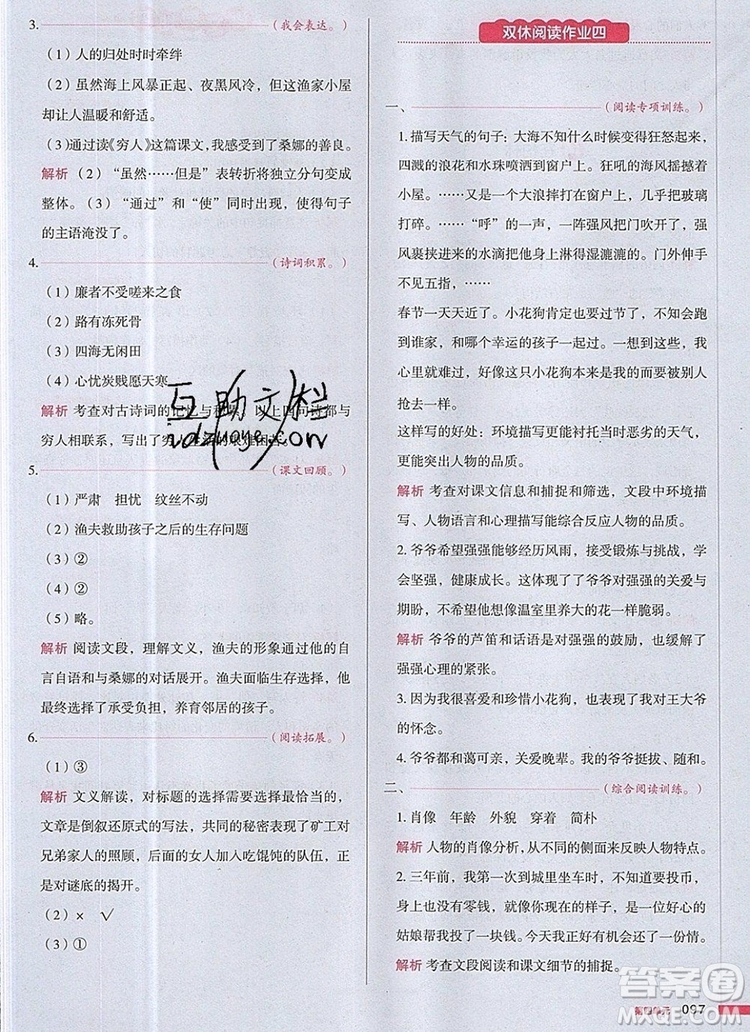 3.（我会表达。）
（1）人的归处时时牵绊
（2）虽然海上风暴正起、夜黑风冷，但这渔家小屋
却让人温暖和舒适。
（3）通过读《穷人》这篇课文，我感受到桑娜的善良。
解析（2）“虽然……但是”表转折将独立分句变成
整体。（3）“通过”和“使”同时出现，使得句子
的主语淹没了。
4.（诗词积累。）
（1）廉者不受嗟来之食
（2）路有冻死骨
（3）四海无闲田
（4）心忧炭贱愿天寒
解析 考查对古诗词的记忆与积累，以上四句诗都与
穷人相联系，写出了穷人生活的艰难困苦。
5.（课文回顾。）
（1）严肃 担忧 纹丝不动
（2）渔夫救助孩子之后的生存问题
（3）②
（4）②
（5）略。
解析 阅读文段，理解文义，渔夫的形象通过他的自
言自语和与桑娜的对话展开。渔夫面临生存选择，他
选择了承受负担，养育邻居的孩子。
6.（阅读拓展。）
（1）③
解析 文义解读，对标题的选择需要读完整个文段，
文章是倒叙还原式的写法，共同的秘密表明了矿工对
兄弟家人的照顾，后面的女人加入吃馄饨的队伍，正
是对谜底的揭开。
（2）× √
（3）①
双休阅读作业四
一、（阅读专项训练。）
1. 描写天气的句子：大海不知什么时候变得狂怒起来，
四溅的浪花和水珠喷洒到窗户上。狂吼的海风摇撼着
窗户。……又一个大浪摔打在窗户上，几乎把玻璃
打碎。……“呼”的一声，一阵强风把门吹开了，强
风裹挟进来的水滴把他全身上下淋得湿漉漉的。门外伸手
不见五指，……
春节一天天近了。……小花狗肯定也要被吃掉。跑到
谁家，和谁家的孩子一起过春节。……所以，我的
心里就难过。我甚至想把这只小花狗从王大爷家里
抢走。……
这样写的好处：环境描写更能衬托当时恶劣的天气，
更能突出人物的品质。
解析 考查对课文信息和捕捉和筛选，文段中环境描
写、人物语言和心理描写能综合反应人物的品质。
2. 爷爷希望强强能够经历风雨，接受锻炼与挑战，学
会坚强，健康成长。这体现了了爷爷对强强的关爱与
期盼，不希望他像温室里养大的花一样脆弱。
解析 爷爷的芦笛和话语是对强强的鼓励，后以衬托
强强心理的紧张。
3. 因为我喜爱和珍惜小花狗，所以体现了我对王大爷
的怀念。
4. 爷爷都和蔼可亲，关爱晚辈。我的爷爷挺拔、随和。
二、（综合阅读训练。）
1. 肖像 年龄 外貌 穿着 简朴
解析 人物的肖像分析，从不同的侧面来反映人物品质。
2. 三年前，我到一个城里坐车时，因为不知道要投币，
也是没有准备零钱，就窘在那儿，一个好心的
姑娘帮我投了一块钱。今天我正好还了一份情。
解析 考查文段阅读和课文细节的捕捉。
第四单元 097
互助文档
答案圈
MXQE.COM